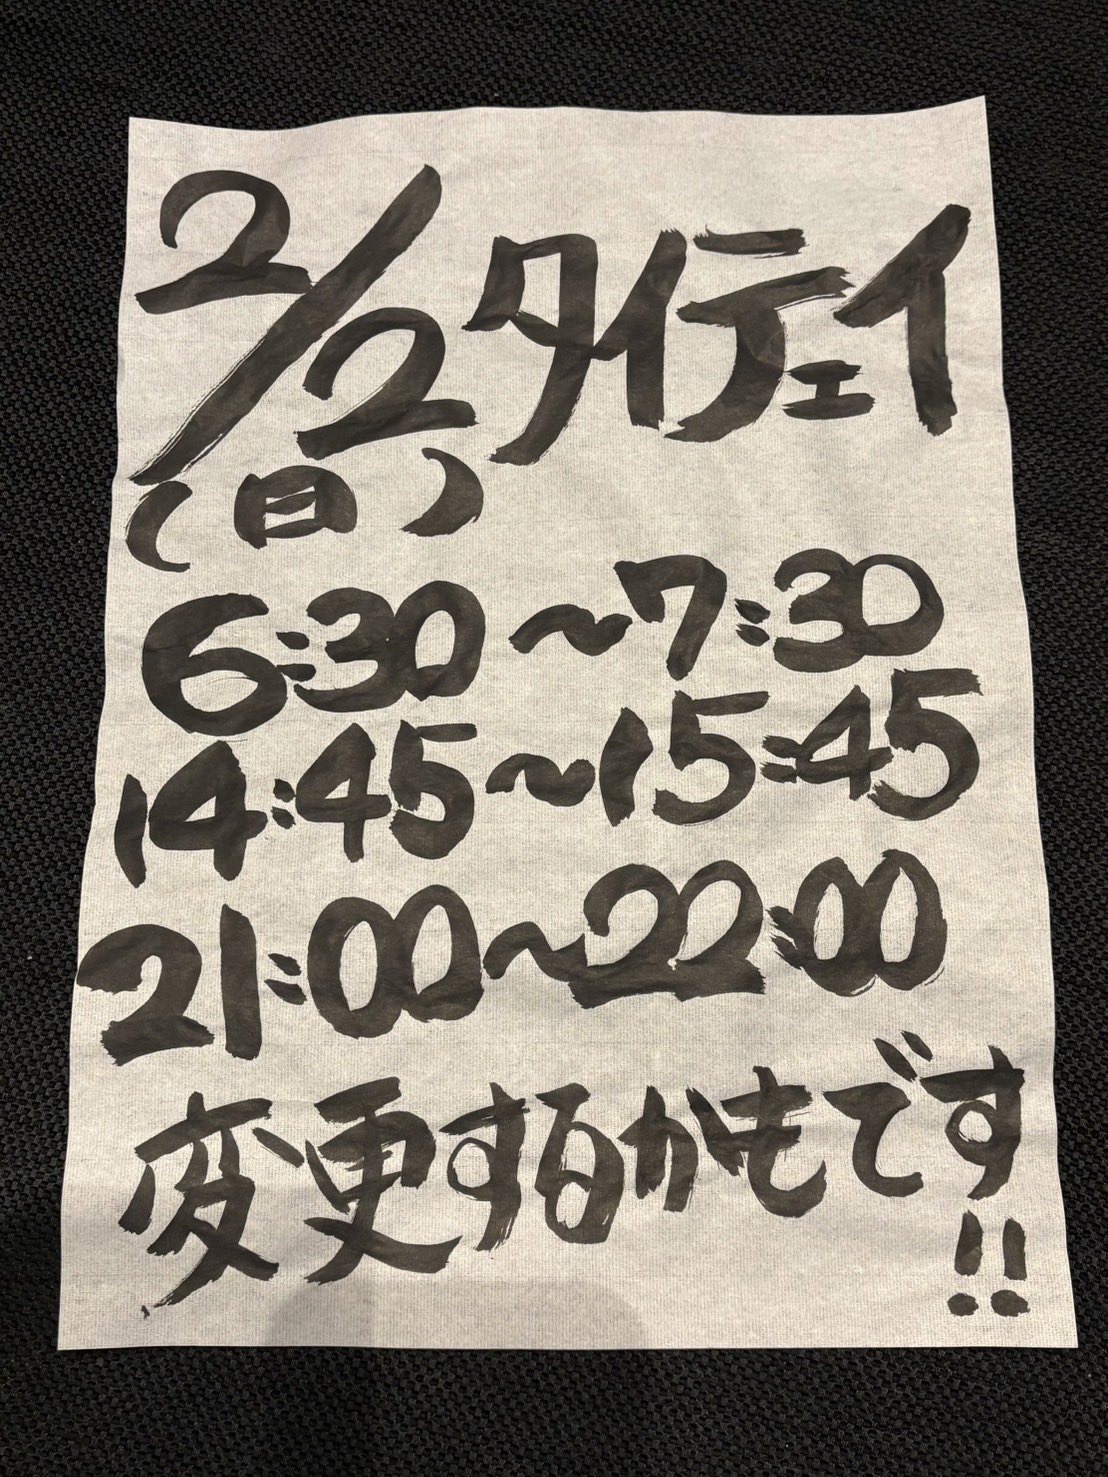 2/2 タイディ
(日)
6:30 ~7:30
14:45~15:45
21:00~22:00
変更するかもです
!!